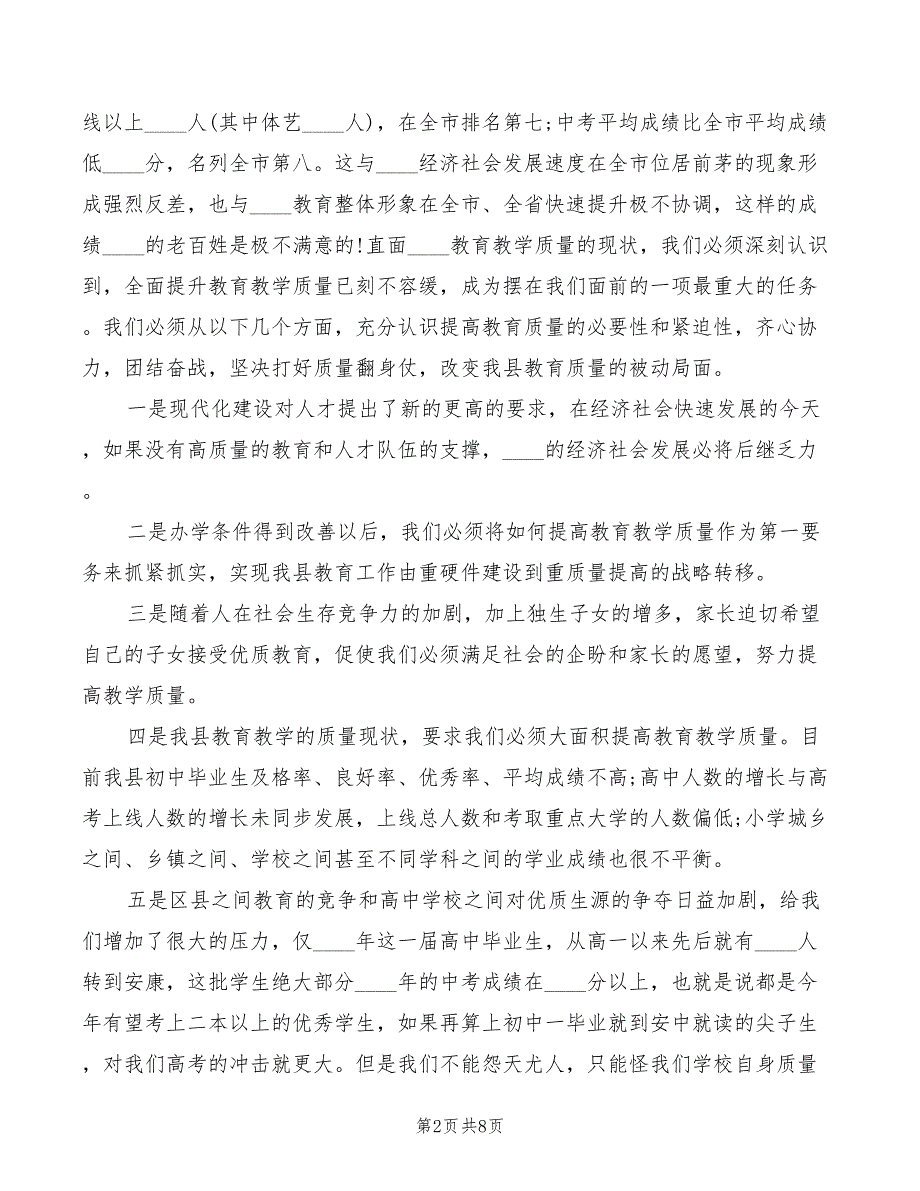 线以上____人(其中体艺____人)，在全市排名第七;中考平均成绩比全市平均成绩
低____分，名列全市第八。这与____经济社会发展速度在全市位居前茅的现象形
成强烈反差，也与____教育整体形象在全市、全省快速提升极不协调，这样的成
绩____的老百姓是极不满意的!直面____教育教学质量的现状，我们必须深刻认识
到，全面提升教育教学质量已刻不容缓，成为摆在我们面前的一项最重大的任务
。我们必须从以下几个方面，充分认识提高教育质量的必要性和紧迫性，齐心协
力，团结奋战，坚决打好质量翻身仗，改变我县教育质量的被动局面。
一是现代化建设对人才提出了新的更高的要求，在经济社会快速发展的今天
，如果没有高质量的教育和人才队伍的支撑，____的经济社会发展必将后继乏力
。
二是办学条件得到改善以后，我们必须将如何提高教育教学质量作为第一要
务来抓紧抓实，实现我县教育工作由重硬件建设到重质量提高的战略转移。
三是随着人在社会生存竞争力的加剧，加上独生子女的增多，家长迫切希望
自己的子女接受优质教育，促使我们必须满足社会的企盼和家长的愿望，努力提
高教学质量。
四是我县教育教学的质量现状，要求我们必须大面积提高教育教学质量。目
前我县初中毕业生及格率、良好率、优秀率、平均成绩不高;高中人数的增长与高
考上线人数的增长未同步发展，上线总人数和考取重点大学的人数偏低;小学城乡
之间、乡镇之间、学校之间甚至不同学科之间的学业成绩也很不平衡。
五是区县之间教育的竞争和高中学校之间对优质生源的争夺日益加剧，给我
们增加了很大的压力，仅____年这一届高中毕业生，从高一以来先后就有____人
转到安康，这批学生绝大部分____年的中考成绩在____分以上，也就是说都是今
年有望考上二本以上的优秀学生，如果再算上初中一毕业就到安中就读的尖子生
，对我们高考的冲击就更大。但是我们不能怨天尤人，只能怪我们学校自身质量
第2页 共8页